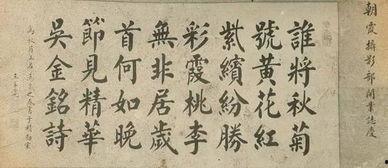 朝霞攝影部開業誌慶
誰將秋菊
號黃花紅
紫繽紛勝
彩霞桃李
無非居歲
首何如晚
節見精華
吳金銘詩